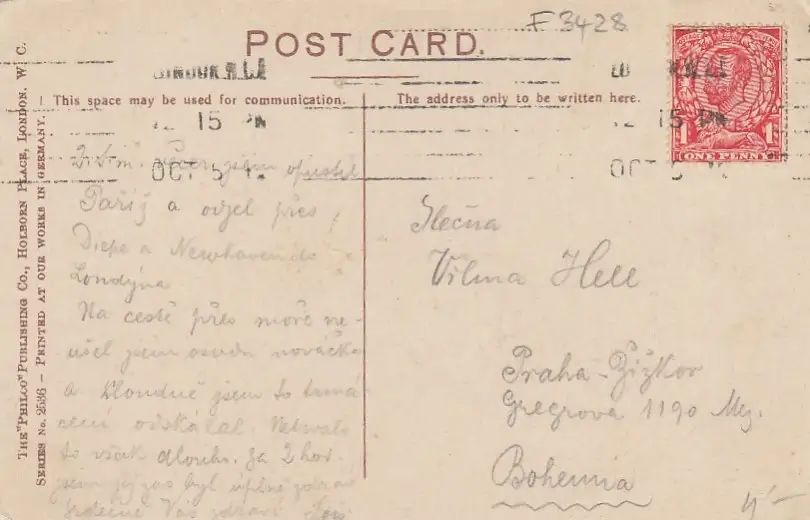 F 3428
POST CARD.
This space may be used for communication.
The address only to be written here.
12 15 PM
OCT 5
15 PM
OCT 5
1 1
ONE PENNY
THE "PHILCO" PUBLISHING CO., HOLBORN PLACE, LONDON. W. C.
SERIES NO. 2536 – PRINTED AT OUR WORKS IN GERMANY.
Včera jsem opustil
Paříž a odjel přes
Diepe a Newhaven do
Londýna
Na cestě přes moře ne-
ušel jsem osudu nováčka
a Londně jsem to
odskákal. Netrvalo
to však dlouho. Za 2 hod.
jsem již zas byl úplně zdráv
Srdečně Vás zdraví
Slečna
Vilma Hell
Praha-Žižkov
Gregrova 1190
Bohemia
4/-